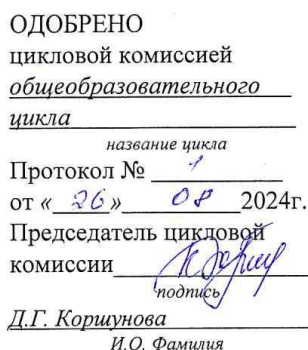 ОДОБРЕНО
цикловой комиссией
общеобразовательного
цикла
название цикла
Протокол № 1
от «26» 08 2024г.
Председатель цикловой
комиссии
подпись
Д.Г. Коршунова
И.О. Фамилия